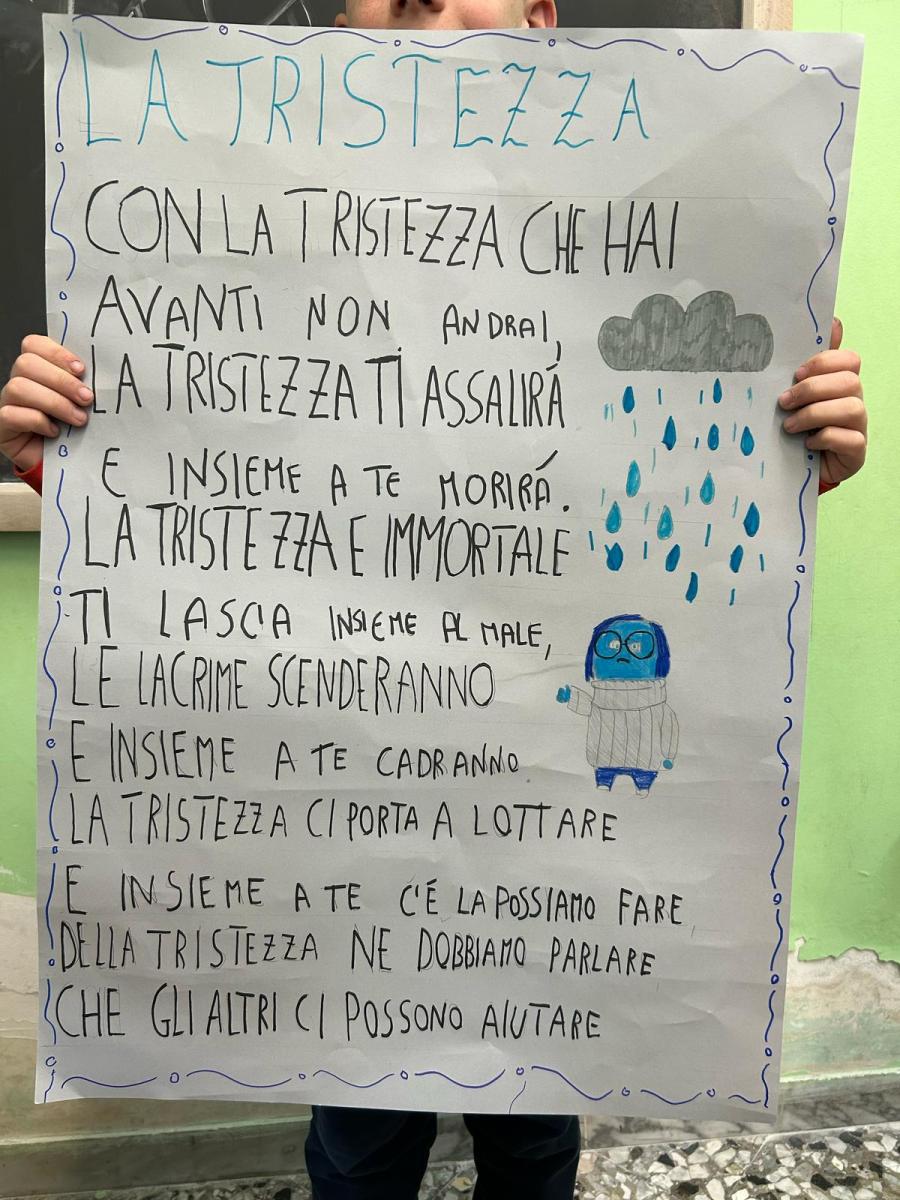 LA TRISTEZZA
CON LA TRISTEZZA CHE HAI
AVANTI NON ANDRAI,
LA TRISTEZZA TI ASSALIRÁ
E INSIEME A TE MORIRÁ.
LA TRISTEZZA E IMMORTALE
TI LASCIA INSIEME AL MALE,
LE LACRIME SCENDERANNO
E INSIEME A TE CADRANNO
LA TRISTEZZA CI PORTA A LOTTARE
E INSIEME A TE C'É LA POSSIAMO FARE,
DELLA TRISTEZZA NE DOBBIAMO PARLARE
CHE GLI ALTRI CI POSSONO AIUTARE